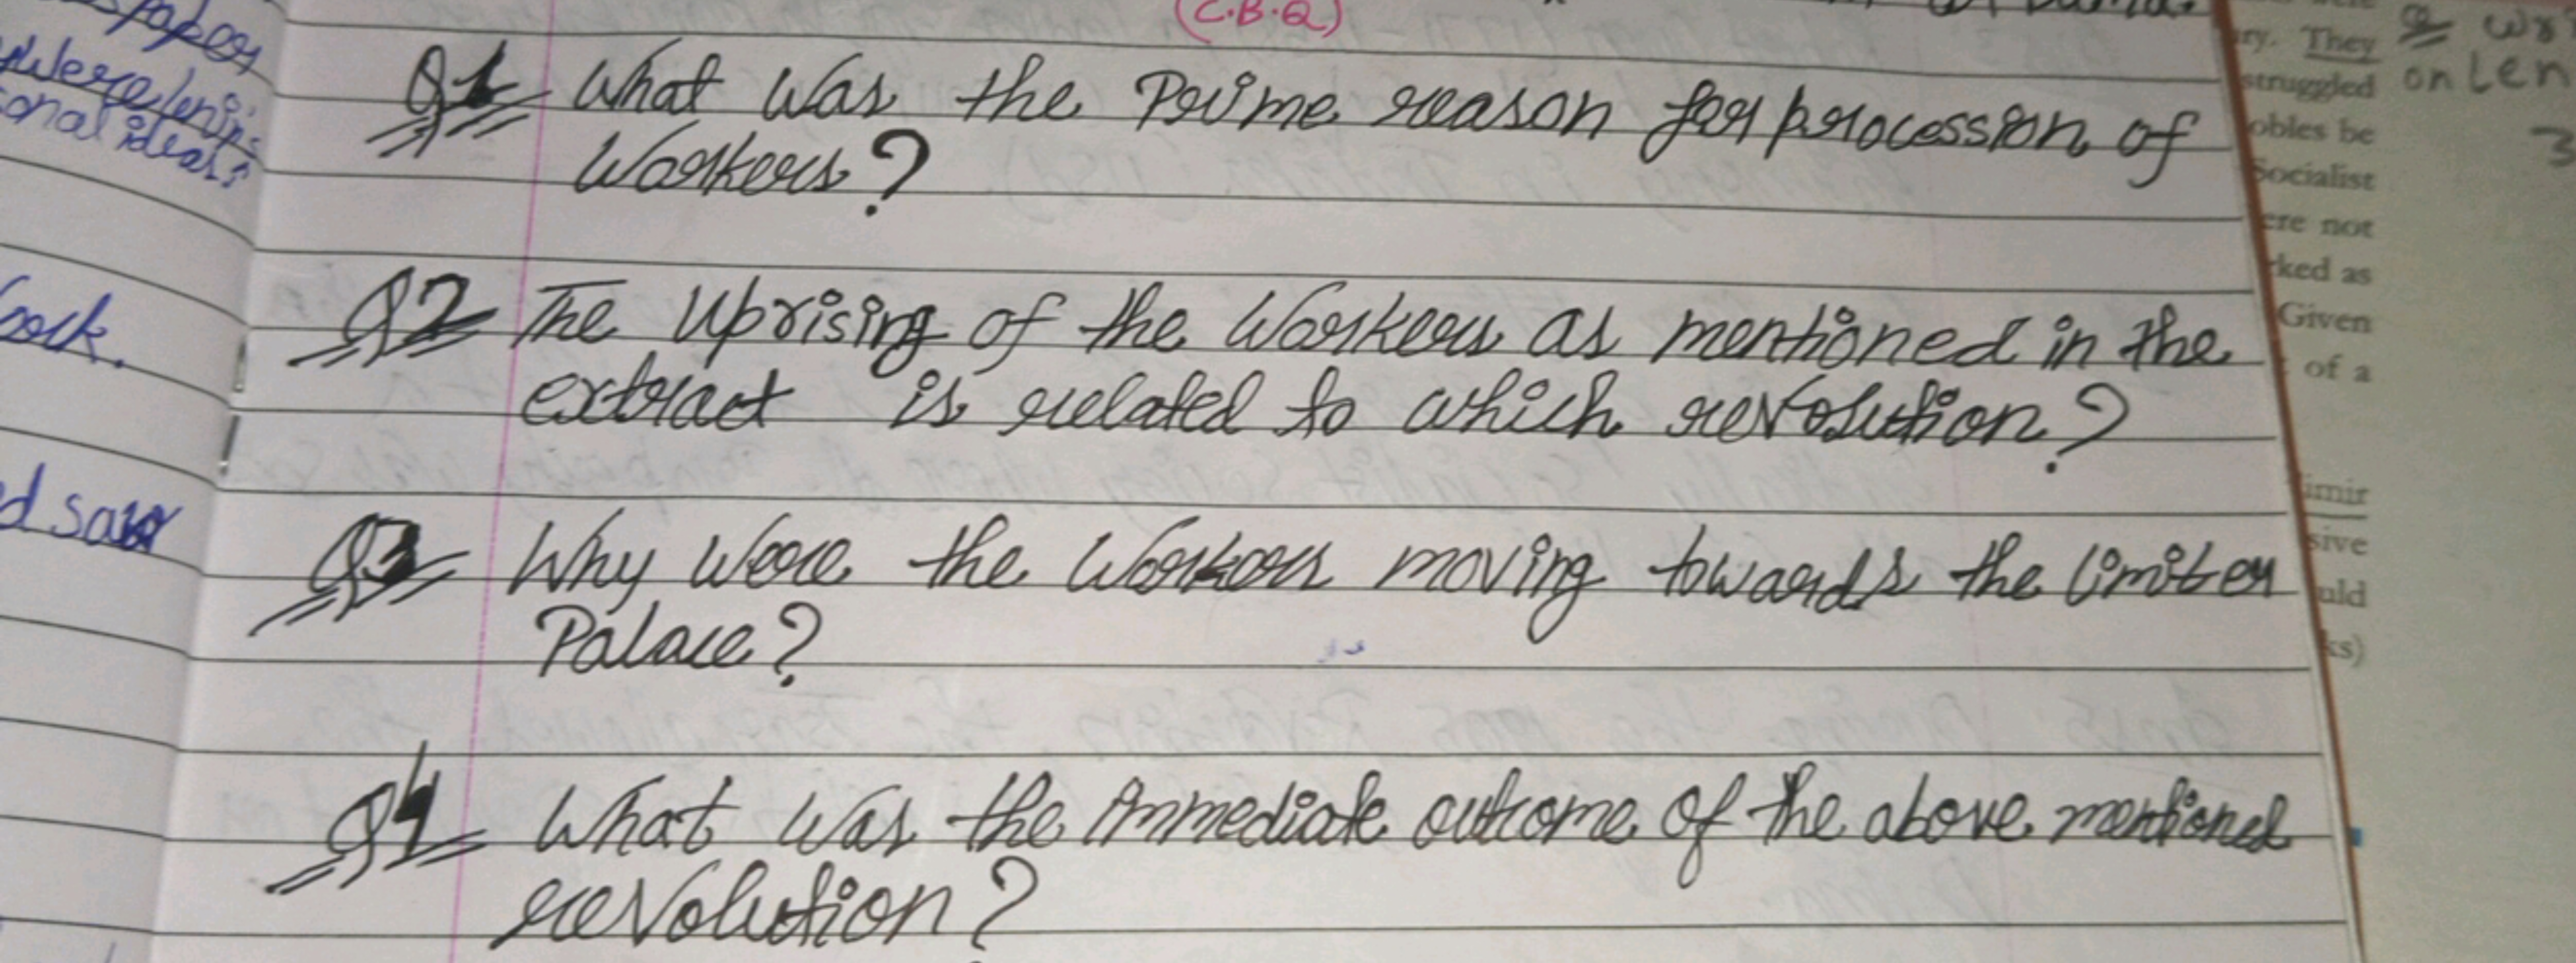 (C.B.Q)
Q1 What was the Prime reason for procession of
Workers?
Q2 The Uprising of the Workers as mentioned in the
extract is related to which revolution?
Q3 Why were the Workers moving towards the Winter
Palace?
Q4 What was the immediate outcome of the above mentioned
revolution?
papers
were
onal ideas
ock.
d saw
ry. They
struggled
obles be
Socialist
ere not
ked as
Given
of a
imir
sive
uld
ks)
on Len
3